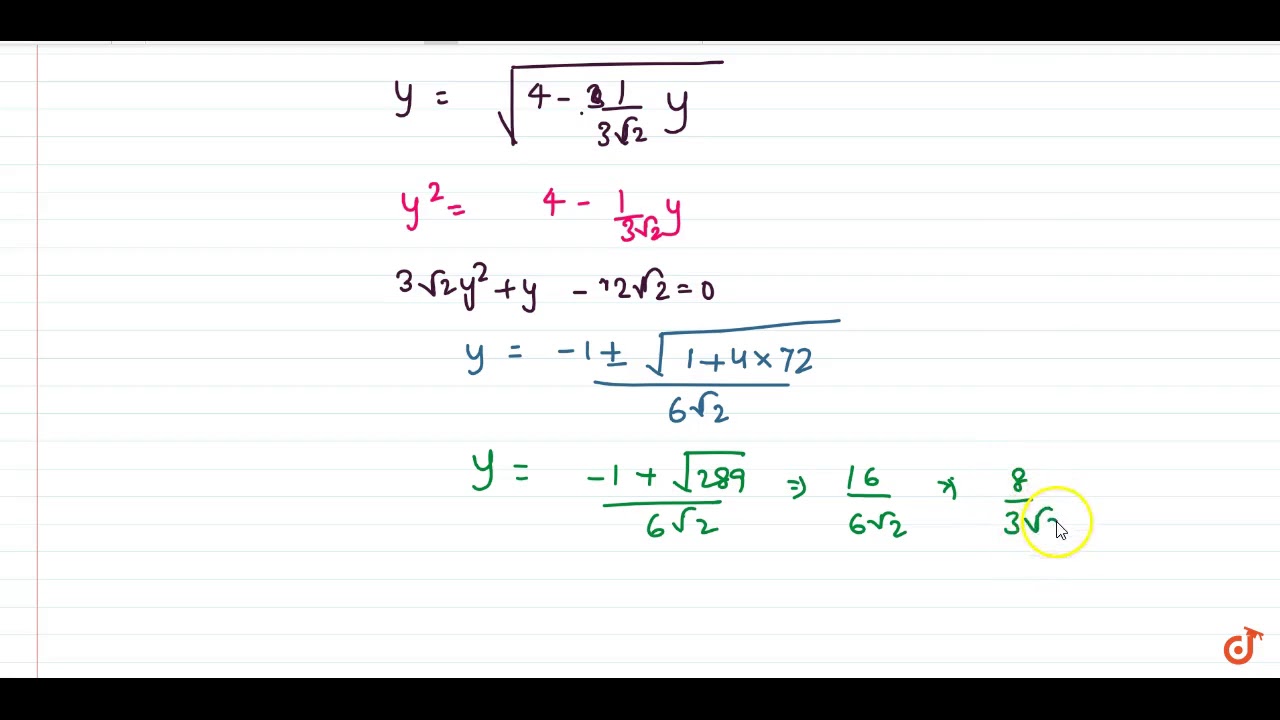 y = √(4 - 1/(3√2) y)
y² = 4 - 1/(3√2) y
3√2y² + y - 12√2 = 0
y = (-1 ± √(1+4×72))/(6√2)
y = (-1 + √289)/(6√2) ⇒ 16/(6√2) ⇒ 8/(3√2)